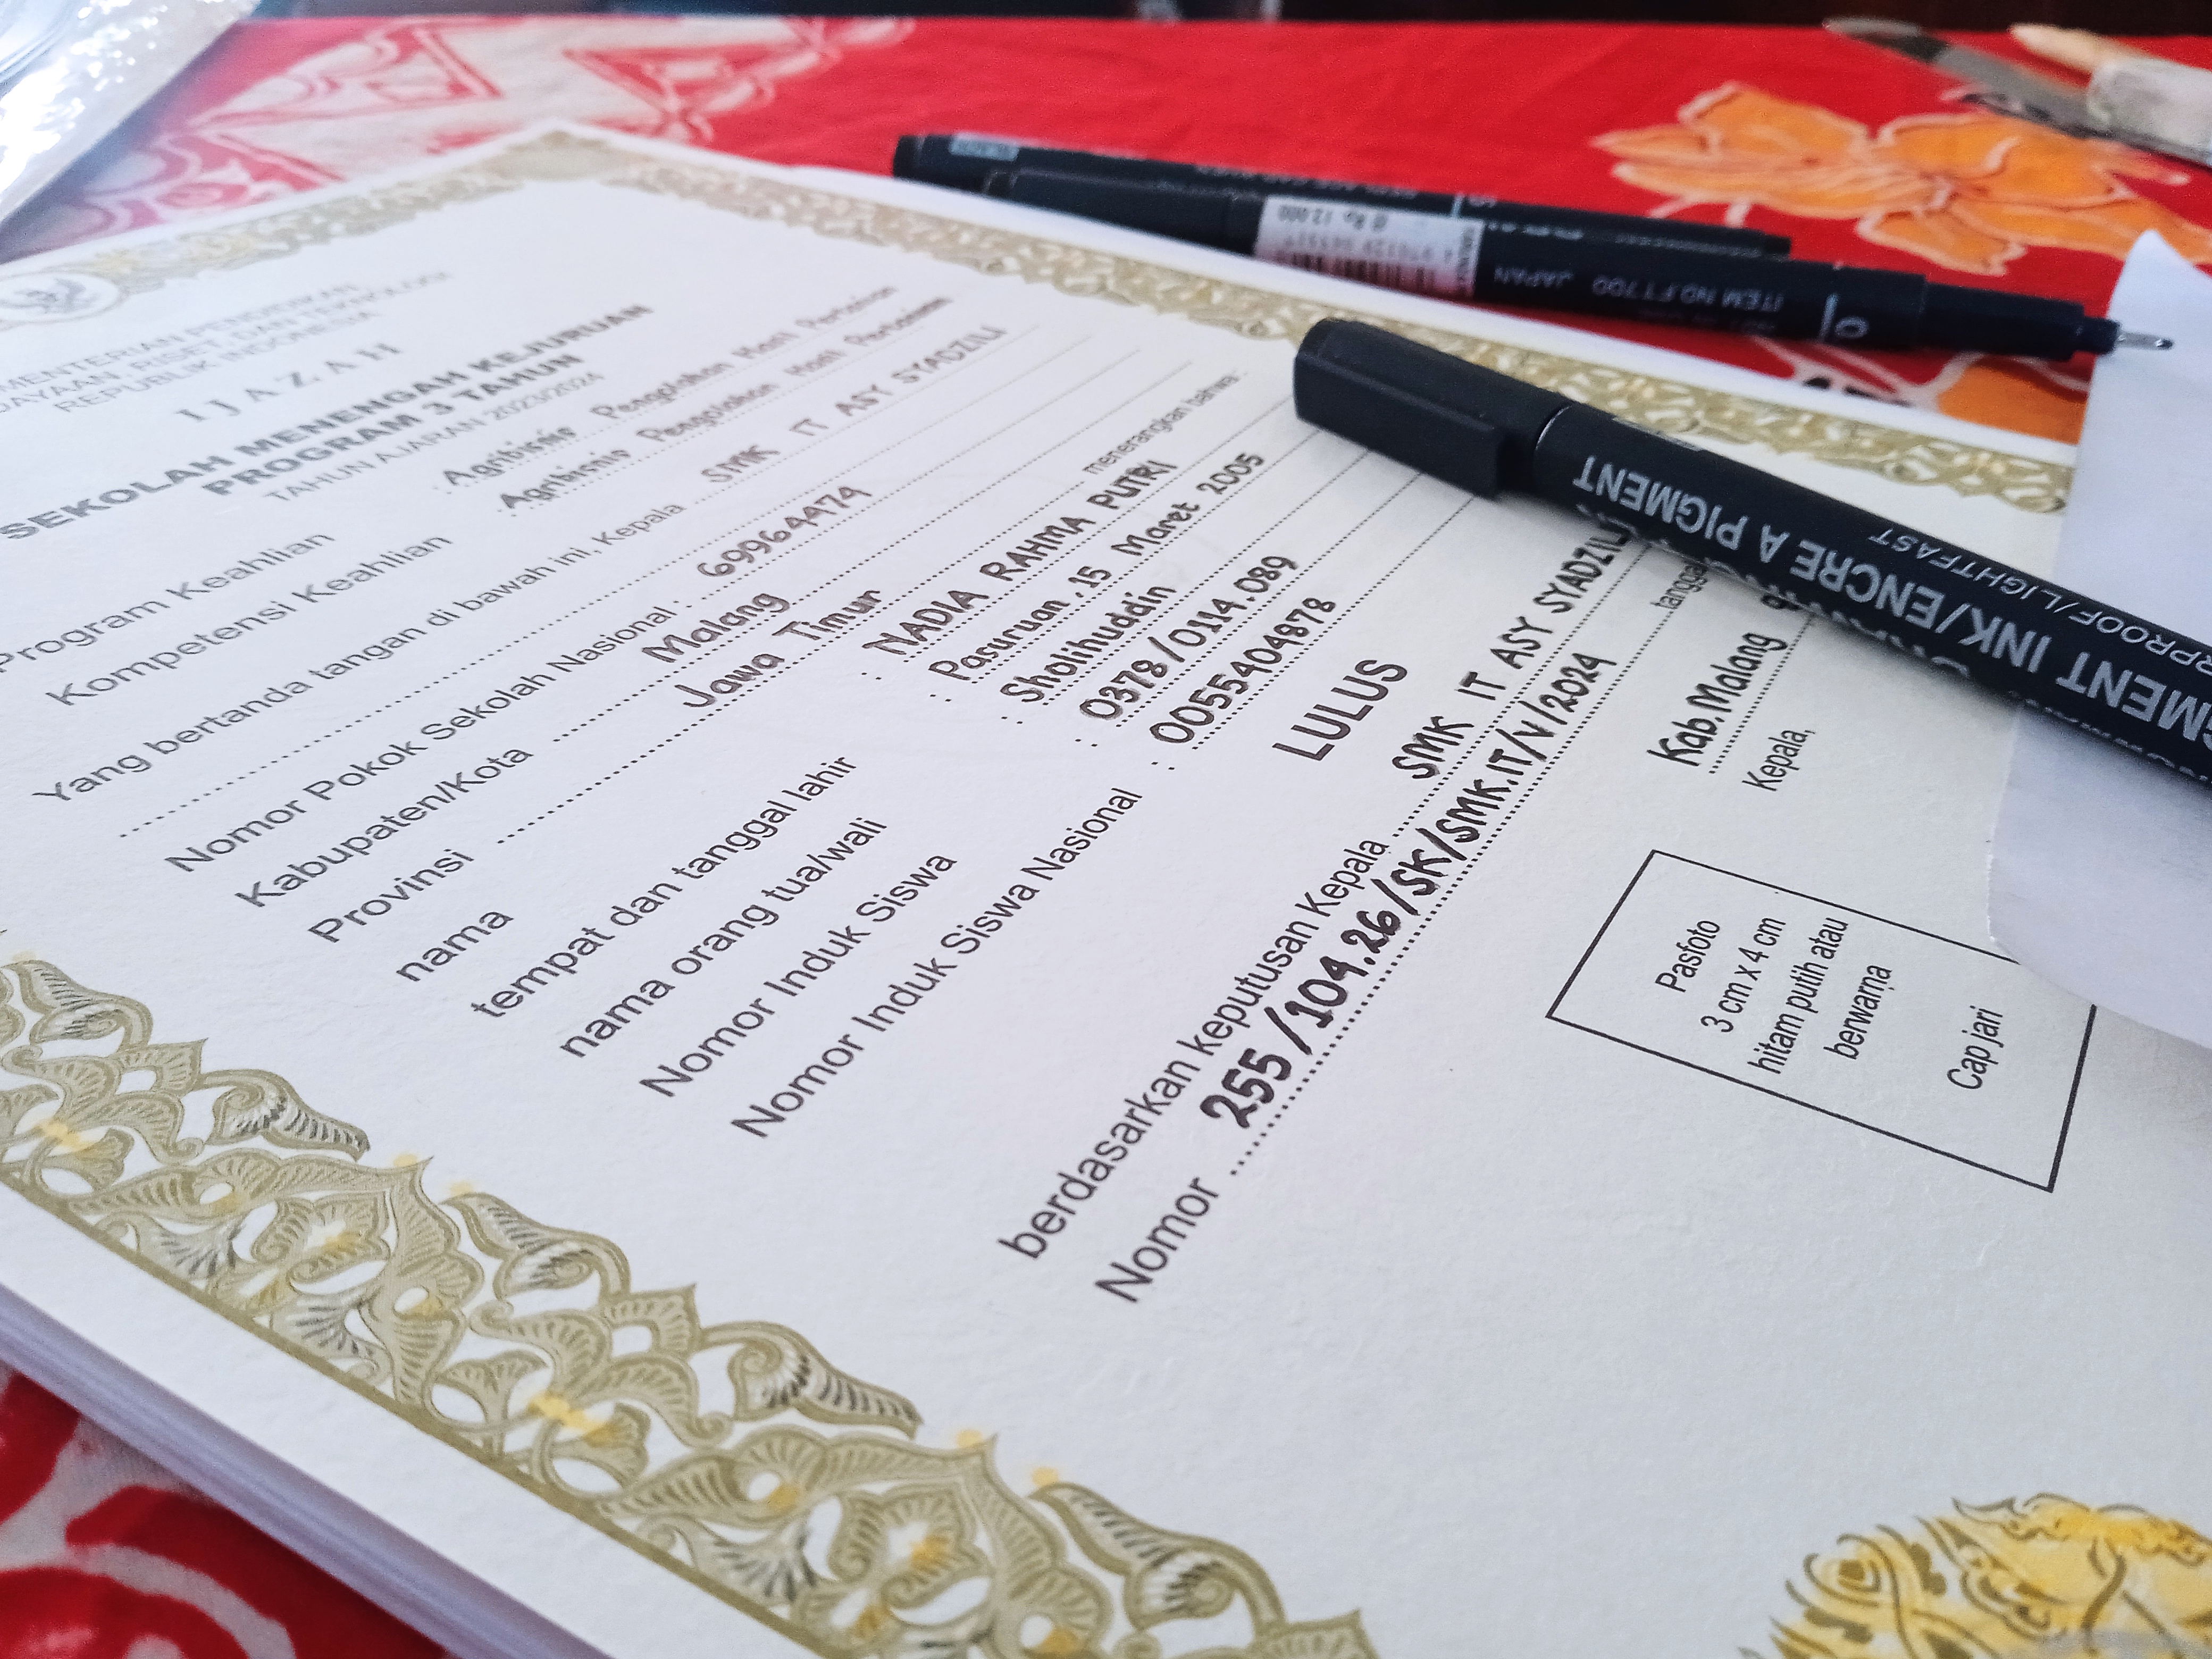 MENTERIAN PENDIDIKAN
DAYAAN, RISET, DAN TEKNOLOGI
REPUBLIK INDONESIA
IJAZAH
SEKOLAH MENENGAH KEJURUAN
PROGRAM 3 TAHUN
TAHUN AJARAN 2023/2024
Program Keahlian Agribisnis Pengolahan Hasil Pertanian
Kompetensi Keahlian Agribisnis Pengolahan Hasil Pertanian
Yang bertanda tangan di bawah ini, Kepala SMK IT ASY SYADZILI
Nomor Pokok Sekolah Nasional : 69964474
Kabupaten/Kota Malang
Provinsi Jawa Timur menerangkan bahwa:
nama : NADIA RAHMA PUTRI
tempat dan tanggal lahir : Pasuruan, 15 Maret 2005
nama orang tua/wali : Sholihuddin
Nomor Induk Siswa : 0378/0114.089
Nomor Induk Siswa Nasional : 0055404878
LULUS
berdasarkan keputusan Kepala SMK IT ASY SYADZILI
Nomor 255/104.26/SK/SMK.IT/V/2024 tanggal
Kab.Malang 9
Kepala,
Pasfoto
3 cm x 4 cm
hitam putih atau
berwarna
Cap jari
MENT INK/ENCRE A PIGMENT
RPROOF/LIGHTFAST
@ Rp 12.000
ITEM NO.FT700 JAPAN